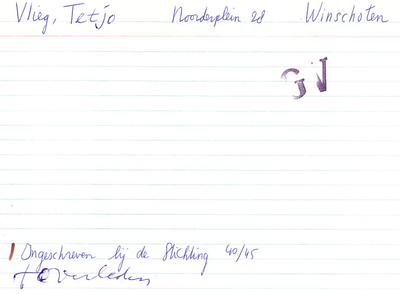 Vlieg, Tetjo Noorderplein 28 Winschoten
GN
Ingeschreven bij de Stichting 40/45
† Overleden